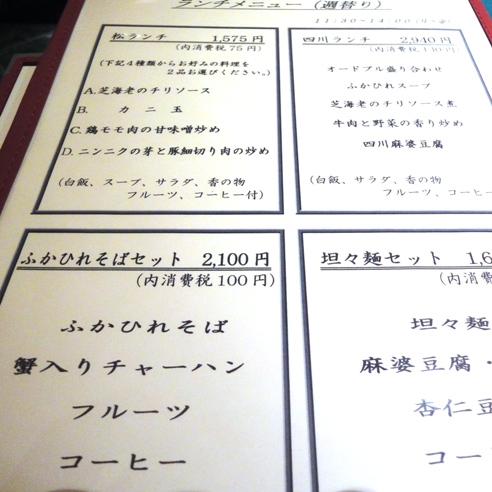 ランチメニュー (週替り)
11:30~14:00
松ランチ 1,575円
(内消費税75円)
(下記4種類からお好みの料理を
2品お選びください。)
A.芝海老のチリソース
B. カニ玉
C.鶏モモ肉の甘味噌炒め
D.ニンニクの芽と豚細切り肉の炒め
(白飯、スープ、サラダ、香の物
フルーツ、コーヒー付)
四川ランチ 2,940円
(内消費税140円)
オードブル盛り合わせ
ふかひれスープ
芝海老のチリソース煮
牛肉と野菜の香り炒め
四川麻婆豆腐
(白飯、サラダ、香の物
フルーツ、コーヒー
ふかひれそばセット 2,100円
(内消費税100円)
ふかひれそば
蟹入りチャーハン
フルーツ
コーヒー
坦々麺セット 1,6
(内消費
坦々麺
麻婆豆腐・
杏仁豆
コー